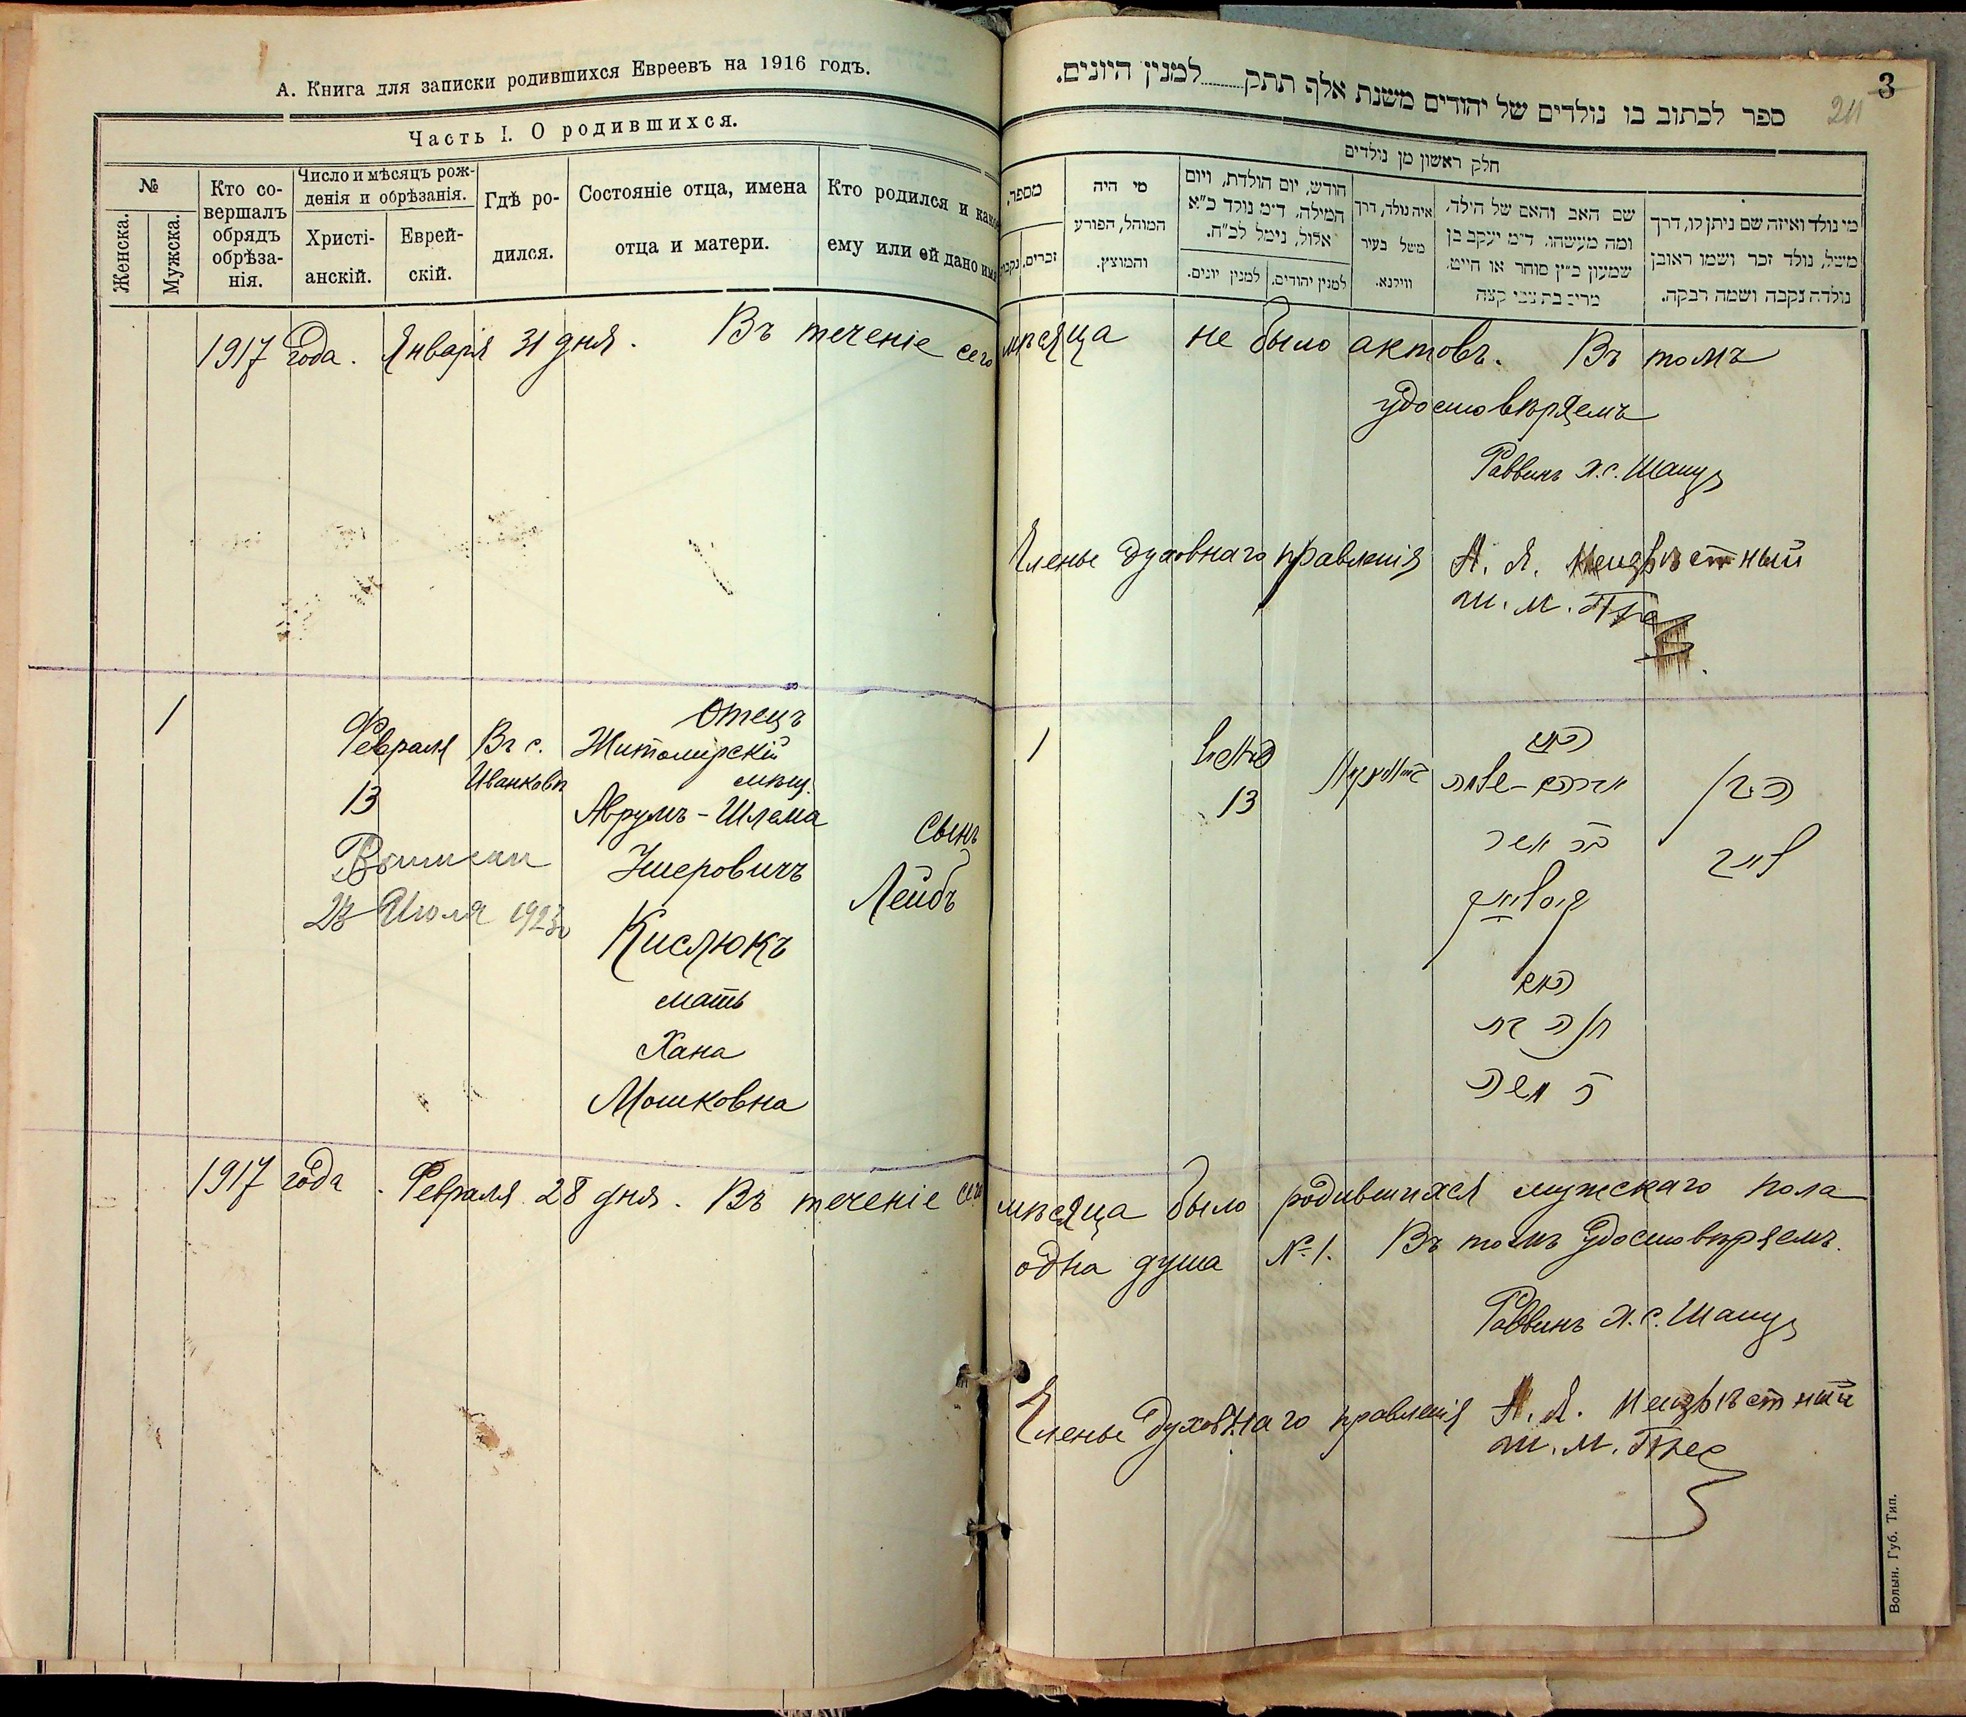 А. Книга для записки родившихся Евреевъ на 1916 годъ.
Часть I. О родившихся.
№
Женска.
Мужска.
Кто со-
вершалъ
обрядъ
обрѣза-
нія.
Число и мѣсяцъ рож-
денія и обрѣзанія.
Христі-
анскій.
Еврей-
скій.
Гдѣ ро-
дился.
Состояніе отца, имена
отца и матери.
Кто родился и како
ему или ей дано имя
1917 года. Января 31 дня. Въ теченіе сего
1
Февраля
13
Въ с.
Иванковѣ
Отецъ
Житомірскій
мѣщ.
Аврумъ-Шлема
Ушеровичъ
Кислюкъ
мать
Хана
Мошковна
Сынъ
Лейбъ
Выписан
Июля 1923
1917 года. Февраля 28 дня. Въ теченіе сего
3
ספר לכתוב בו נולדים של יהודים משנת אלף תתק למנין היונים.
חלק ראשון מן נולדים
מספר,
זכרים,
מי היה
המוהל, הפורע
והמוצץ.
חודש, יום הולדת, ויום
המילה. ד״מ נולד כ״א
אלול, נימל לכ״ח.
למנין יהודים.
למנין יונים.
איה נולד, דרך
משל בעיר
ווילנא.
שם האב והאם של הילד,
ומה מעשהו. ד״מ יעקב בן
שמעון כ״ץ סוחר או חייט.
מי נולד ואיזה שם ניתן לו, דרך
משל, נולד זכר ושמו ראובן
נולדה נקבה ושמה רבקה.
мѣсяца не было актовъ. Въ томъ
удостовѣряемъ
Раввинъ Х.С. Шапу
Члены духовнаго правленія А. Я. Неизвѣстный
Ш. М.
1
13
האב
אברהם-שלמה
בר אשר
קיסליוק
האם
חנה בת
ר משה
הבן
לייב
мѣсяца было родившихся мужскаго пола
одна душа №1. Въ томъ удостовѣряемъ.
Раввинъ Х.С. Шапу
Члены Духовнаго правленія А. Я. Неизвѣстный
Ш. М.
Волын. Губ. Тип.